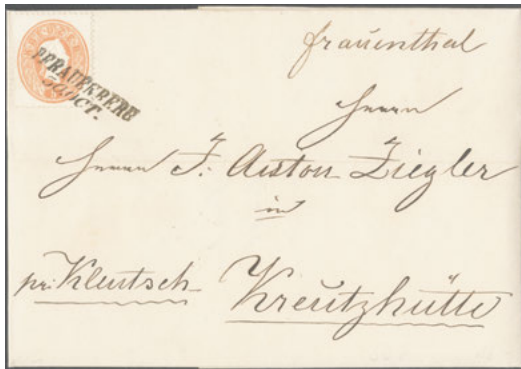 OCT.
frauenthal
Herrn
Herrn J. Anton Ziegler
in
pr: Klentsch Kreutzhütte